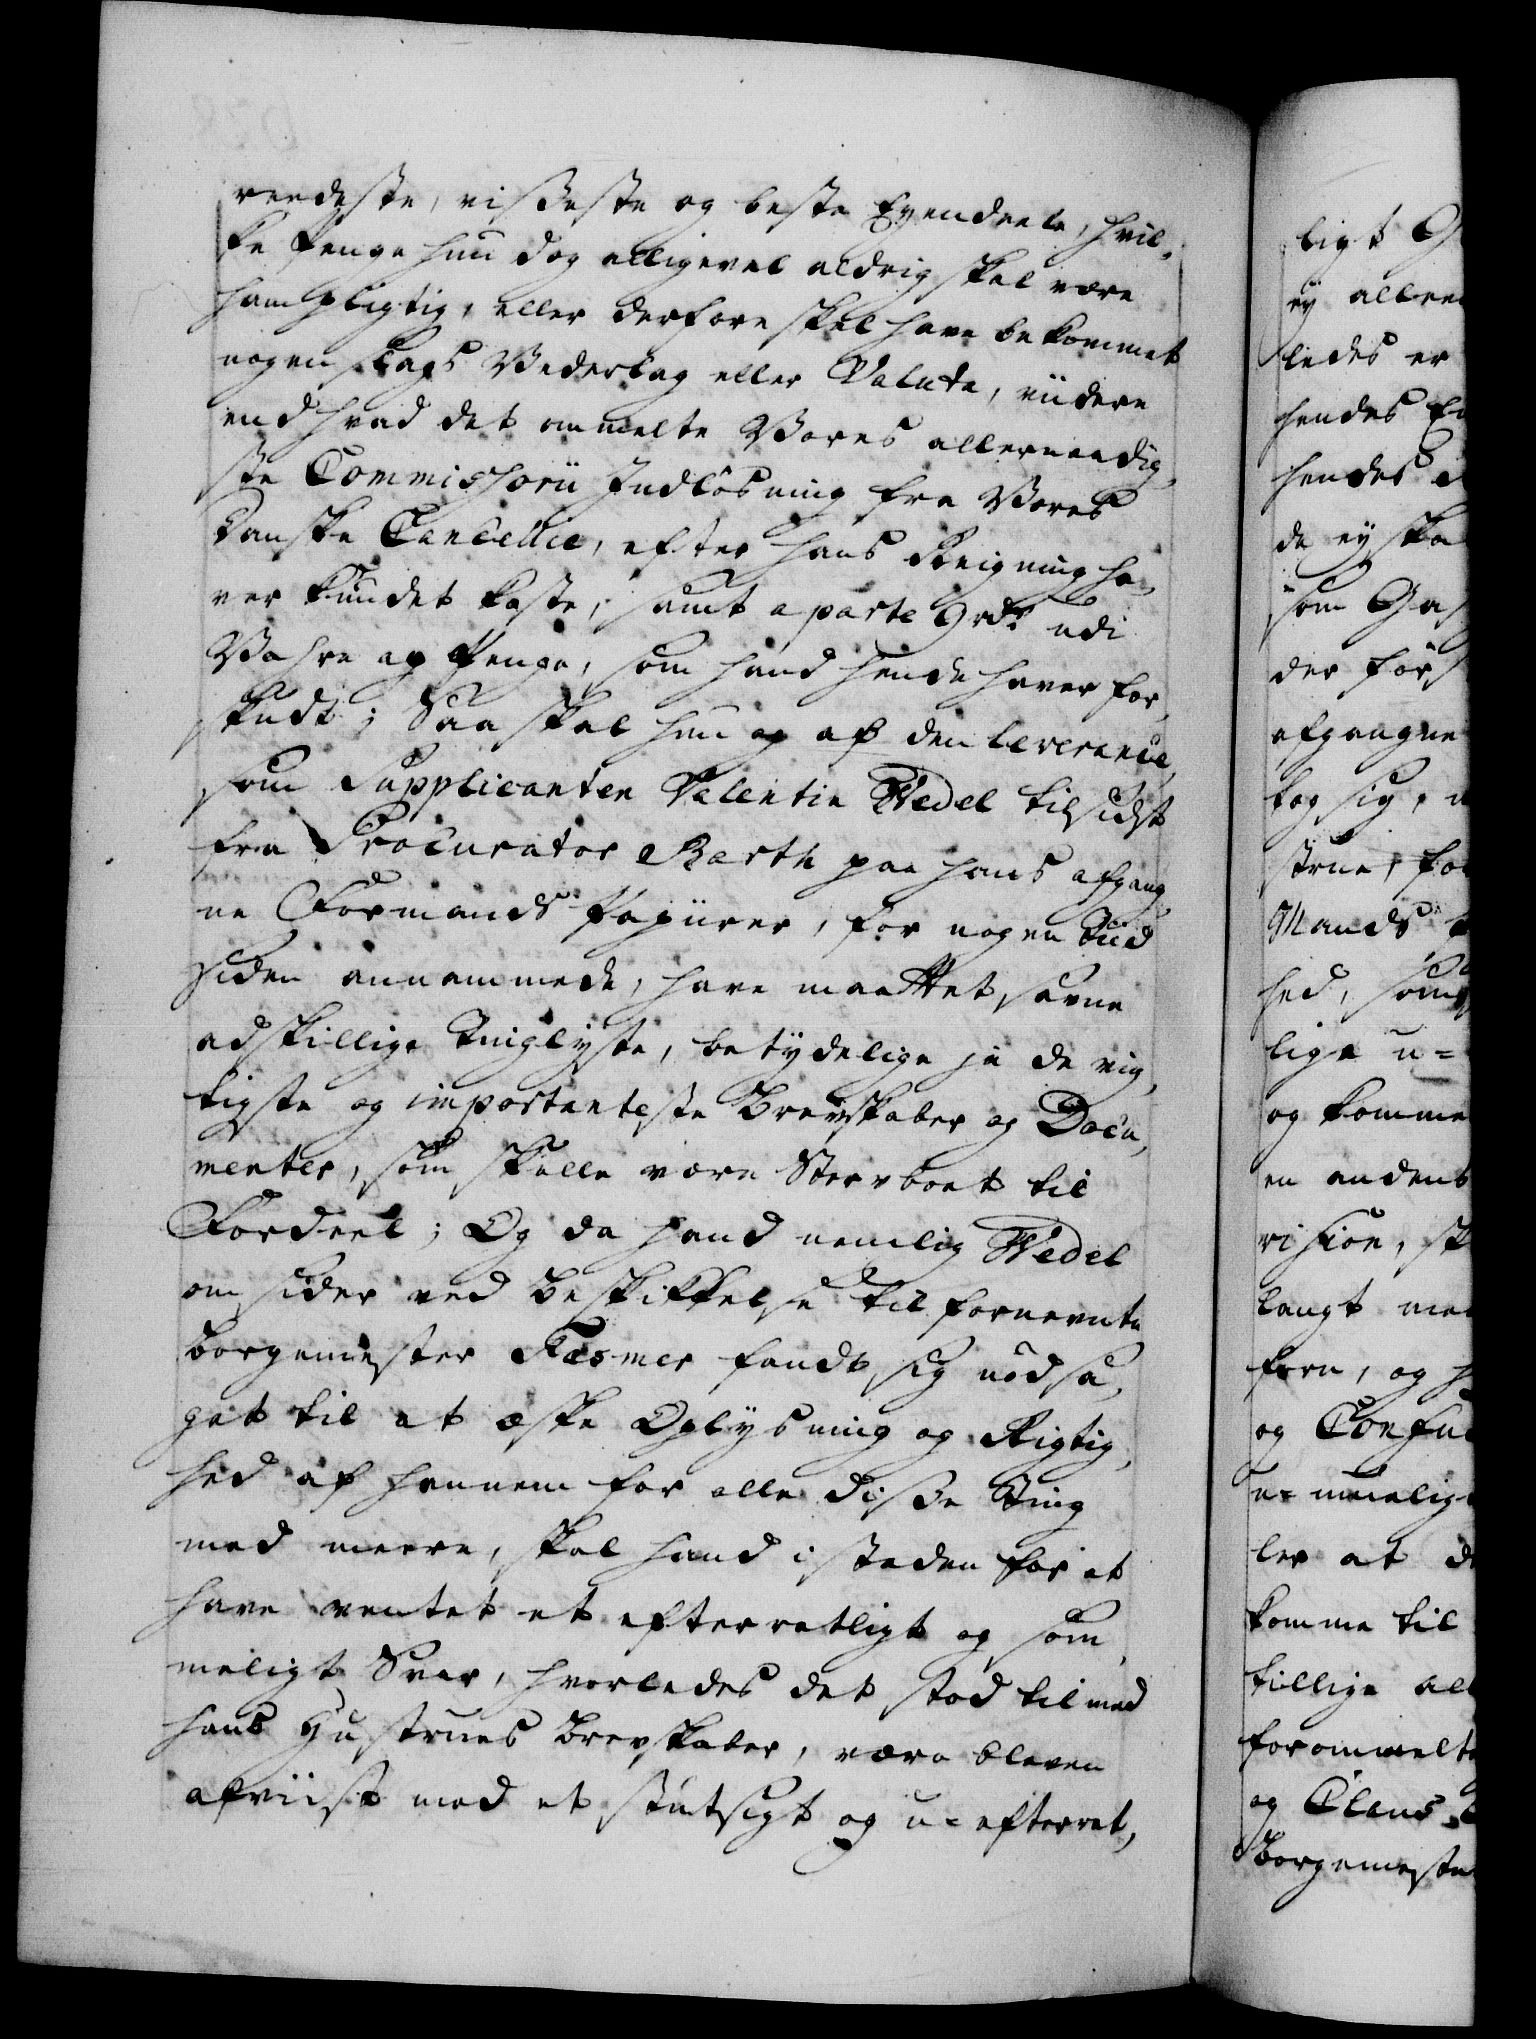 reedeste, visseste og beste Eyendeele, hvil-
ke Penge hun dog alligevel aldrig skal være
ham pligtig, eller derfore skal have bekommet
nogen slags Vederlag eller Valuta, viidere
end hvad det ommelte Vores allernaadig-
ste Commissorii Indlösning fra Vores
Danske Cancellie, efter hans Reigning ha-
ver kundet koste, samt aparte 9 rdr udi
Vahre og Penge, som hand hende haver for-
skudt; Saa skal hun og af den leverance,
som Supplicanten Valentin Wedel tilsidst
fra Procurator Barth paa hans afgang-
ne Formands Papiirer, for nogen Tiid
siden annammede, have maattet savne
adskillige Tinglyste, betydelige ja de vig-
tigste og importanteste Brevskaber og Docu-
menter, som skulle være Stervboet til
Fordeel; Og da hand nemlig Wedel
omsider ved Beskikkelse til fornevnte
Borgemester Fæsmer fandt sig nödsa-
get til at æske Oplysning og Rigtig-
hed af hannem for alle disse Ting
med meere, skal hand i steden for at
have ventet et efterretligt og søm-
meligt Svar, hvorledes det stod til med
hans Hustrues Brevskaber, være bleven
afviist med et studtsigt og u-efterret-
ligt
ey alleen
ledes er
hendes
hendes
de ey ska
som
der för
afgangne
tog sig,
strue, for
Mands
hed, som
lige u-
og komme
en andens
vision, sk
langt mee
fern, og
og Confu
u-muelig
ler at d
komme til
tillige al
forommelte
og Claus
Borgemeste